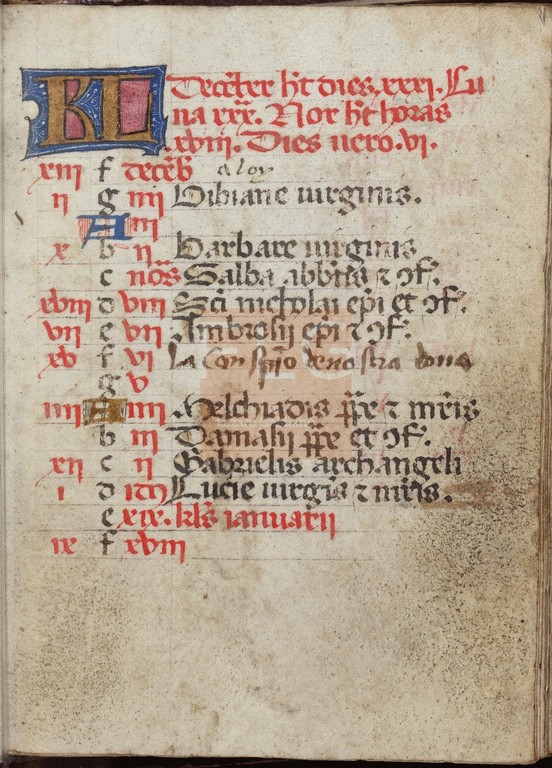 KL Decēber h̄t dies xxxi. Lu
na xxx. Nox h̄t horas
.xviii. Dies uero .vi.
xiii f decēb aloy
ii g iiii Bibiane uirginis.
A iii
x b ii Barbare uirginis
c noñs Salba abbatis ⁊ ɔf.
xviii d viii Scī nicholai ep̄i et ɔf.
vii e vii Ambrosii ep̄i ⁊ ɔf.
xv f vi La Conspīo de nostra dona
g v
iiii A iiii Melchiadis p̄pe ⁊ mr̄is
b iii Damasii p̄pe et ɔf.
xii c ii Gabrielis archangeli
i d idꝰ Lucie uirgīs ⁊ mr̄is.
e xix. kl̄s ianuarii
ix f xviii